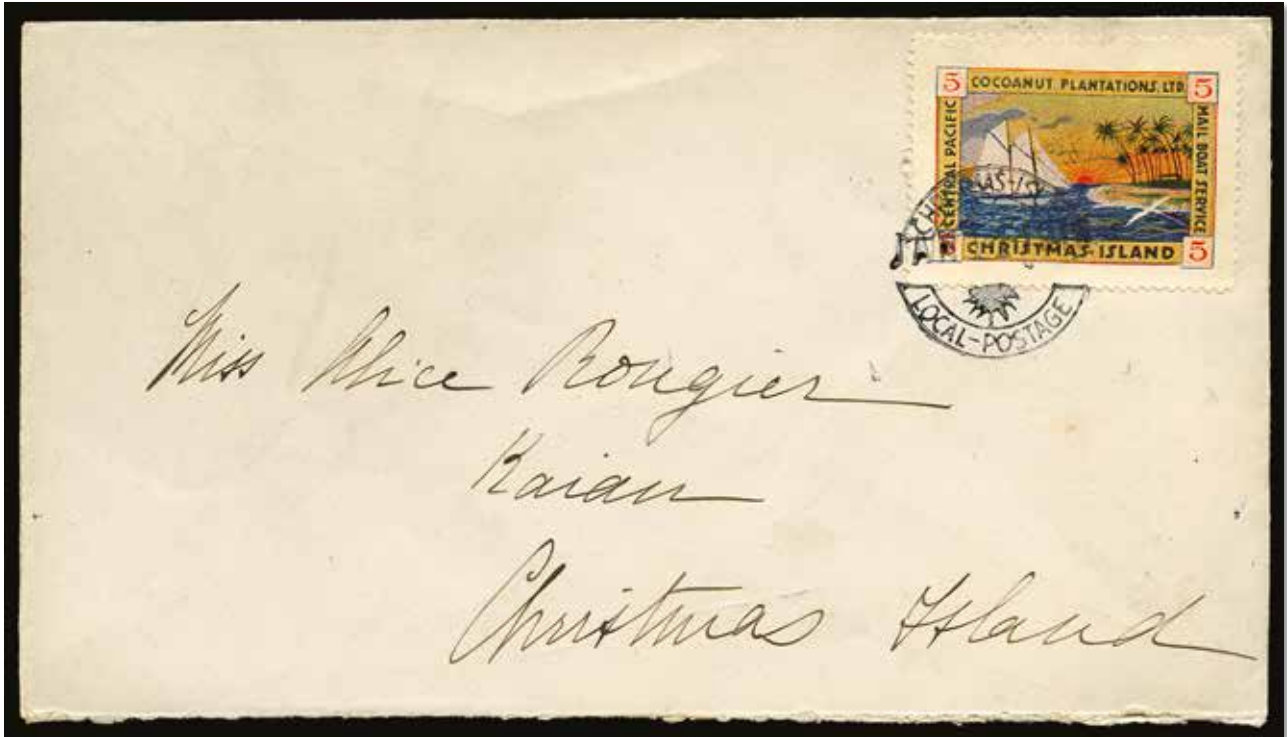 5 COCOANUT PLANTATIONS, LTD. 5
CENTRAL PACIFIC
MAIL BOAT SERVICE
CHRISTMAS-ISLAND 5
LOCAL-POSTAGE
Miss Alice Rougier
Christmas Island